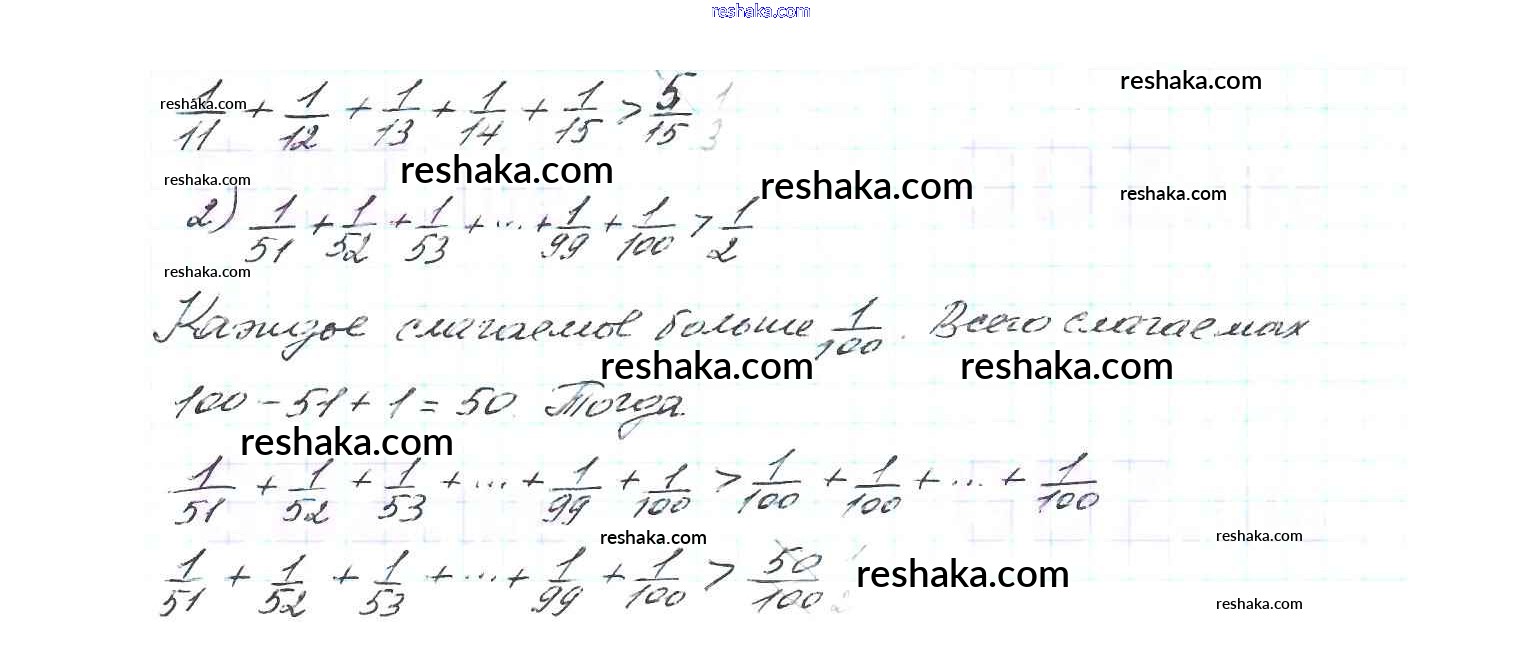 reshaka.com
1/11 + 1/12 + 1/13 + 1/14 + 1/15 > 5/15 1/3
reshaka.com
reshaka.com
reshaka.com
reshaka.com
reshaka.com
reshaka.com
2) 1/51 + 1/52 + 1/53 + ... + 1/99 + 1/100 > 1/2
reshaka.com
Каждое слагаемое больше 1/100. Всего слагаемых
reshaka.com
reshaka.com
100 - 51 + 1 = 50. Тогда.
reshaka.com
1/51 + 1/52 + 1/53 + ... + 1/99 + 1/100 > 1/100 + 1/100 + ... + 1/100
reshaka.com
reshaka.com
1/51 + 1/52 + 1/53 + ... + 1/99 + 1/100 > 50/100
reshaka.com
reshaka.com